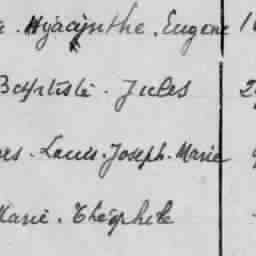 Hyacinthe. Eugene 1
Baptiste. Jules 2
Louis. Joseph. Marie
Marie. Théophile